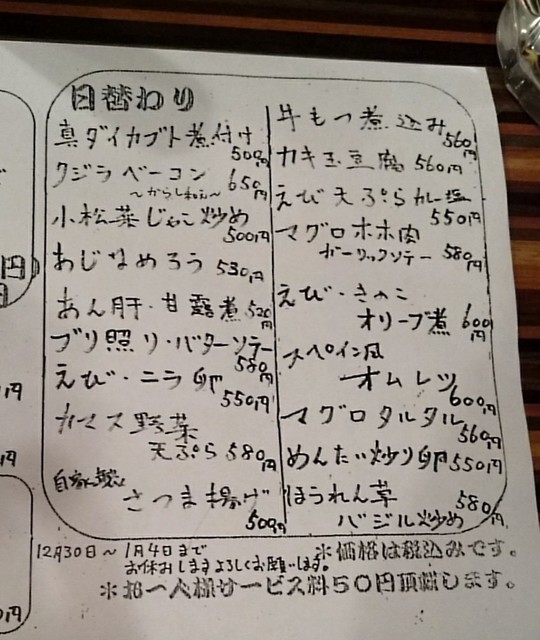 日替わり
真ダイカブト煮付け
500円
クジラベーコン 650円
小松菜じゃこ炒め
500円
あじなめろう 530円
あん肝・甘露煮 520円
ブリ照り・バターソテー
580円
えび・ニラ卵
550円
カマス野菜
天ぷら 580円
自家製
さつま揚げ
500円
牛もつ煮込み
560円
カキ玉豆腐 560円
えび天ぷらカレー塩
550円
マグロホホ肉
ガーリックソテー 580円
えび・きのこ
オリーブ煮 600円
スペイン風
オムレツ
600円
マグロタルタル
560円
めんたい炒り卵 550円
ほうれん草 580円
バジル炒め
12月30日～1月4日まで
お休みしますよろしくお願いします。
※価格は税込みです。
※お一人様サービス料50円頂戴します。
円
円
円
円